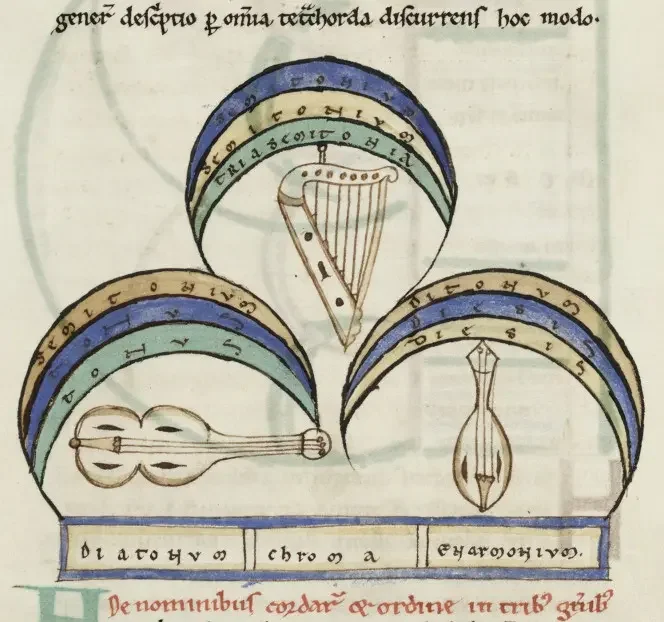 gener᷒ descptio ꝑ om̄ia tetͨchorda discurrens hoc modo.
SEMITONIVM
SEMITONIVM
TRIASEMITONIA
SEMITONIVM
TONVS
TONVS
DITONVM
DIESIS
DIESIS
DIATONVM
chroma
ENARMONIVM.
De nominibus cordar᷒ & ordine in trib᷒